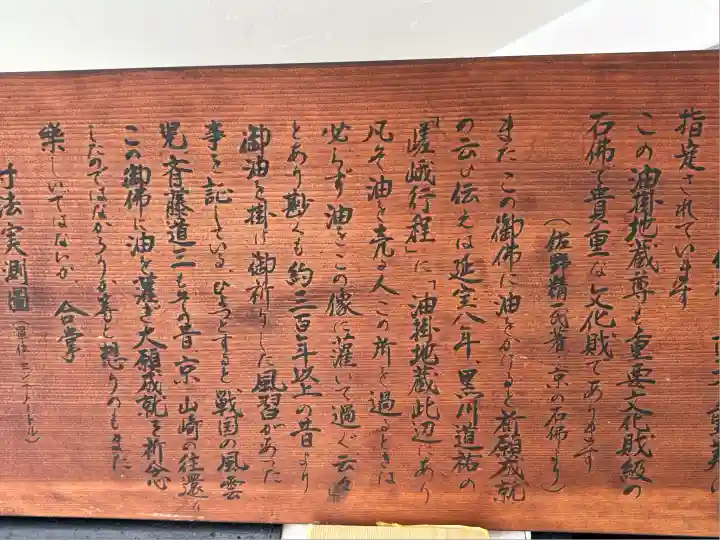 指定されています
この油掛地蔵尊も重要文化財級の
石佛で貴重な文化財であります
(佐野精一氏著、京の石佛より)
またこの御佛に油をかけると祈願成就
の云い伝えは延宝八年、黒川道祐の
「嵯峨行程」に「油掛地蔵此辺にあり
凡そ油を売る人この所を過るときは
必らず油をこの像に灌いで過ぐ云々」
とあり尠くも約三百年以上の昔より
御油を掛け御祈りした風習があった
事を証している、ひょっとすると戦国の風雲
児斎藤道三もその昔、京、山崎の往還に
この御佛に油を灌ぎ大願成就を祈念
したのではなかろうか等と想うのもまた
楽しいではないか、 合掌
寸法実測圖